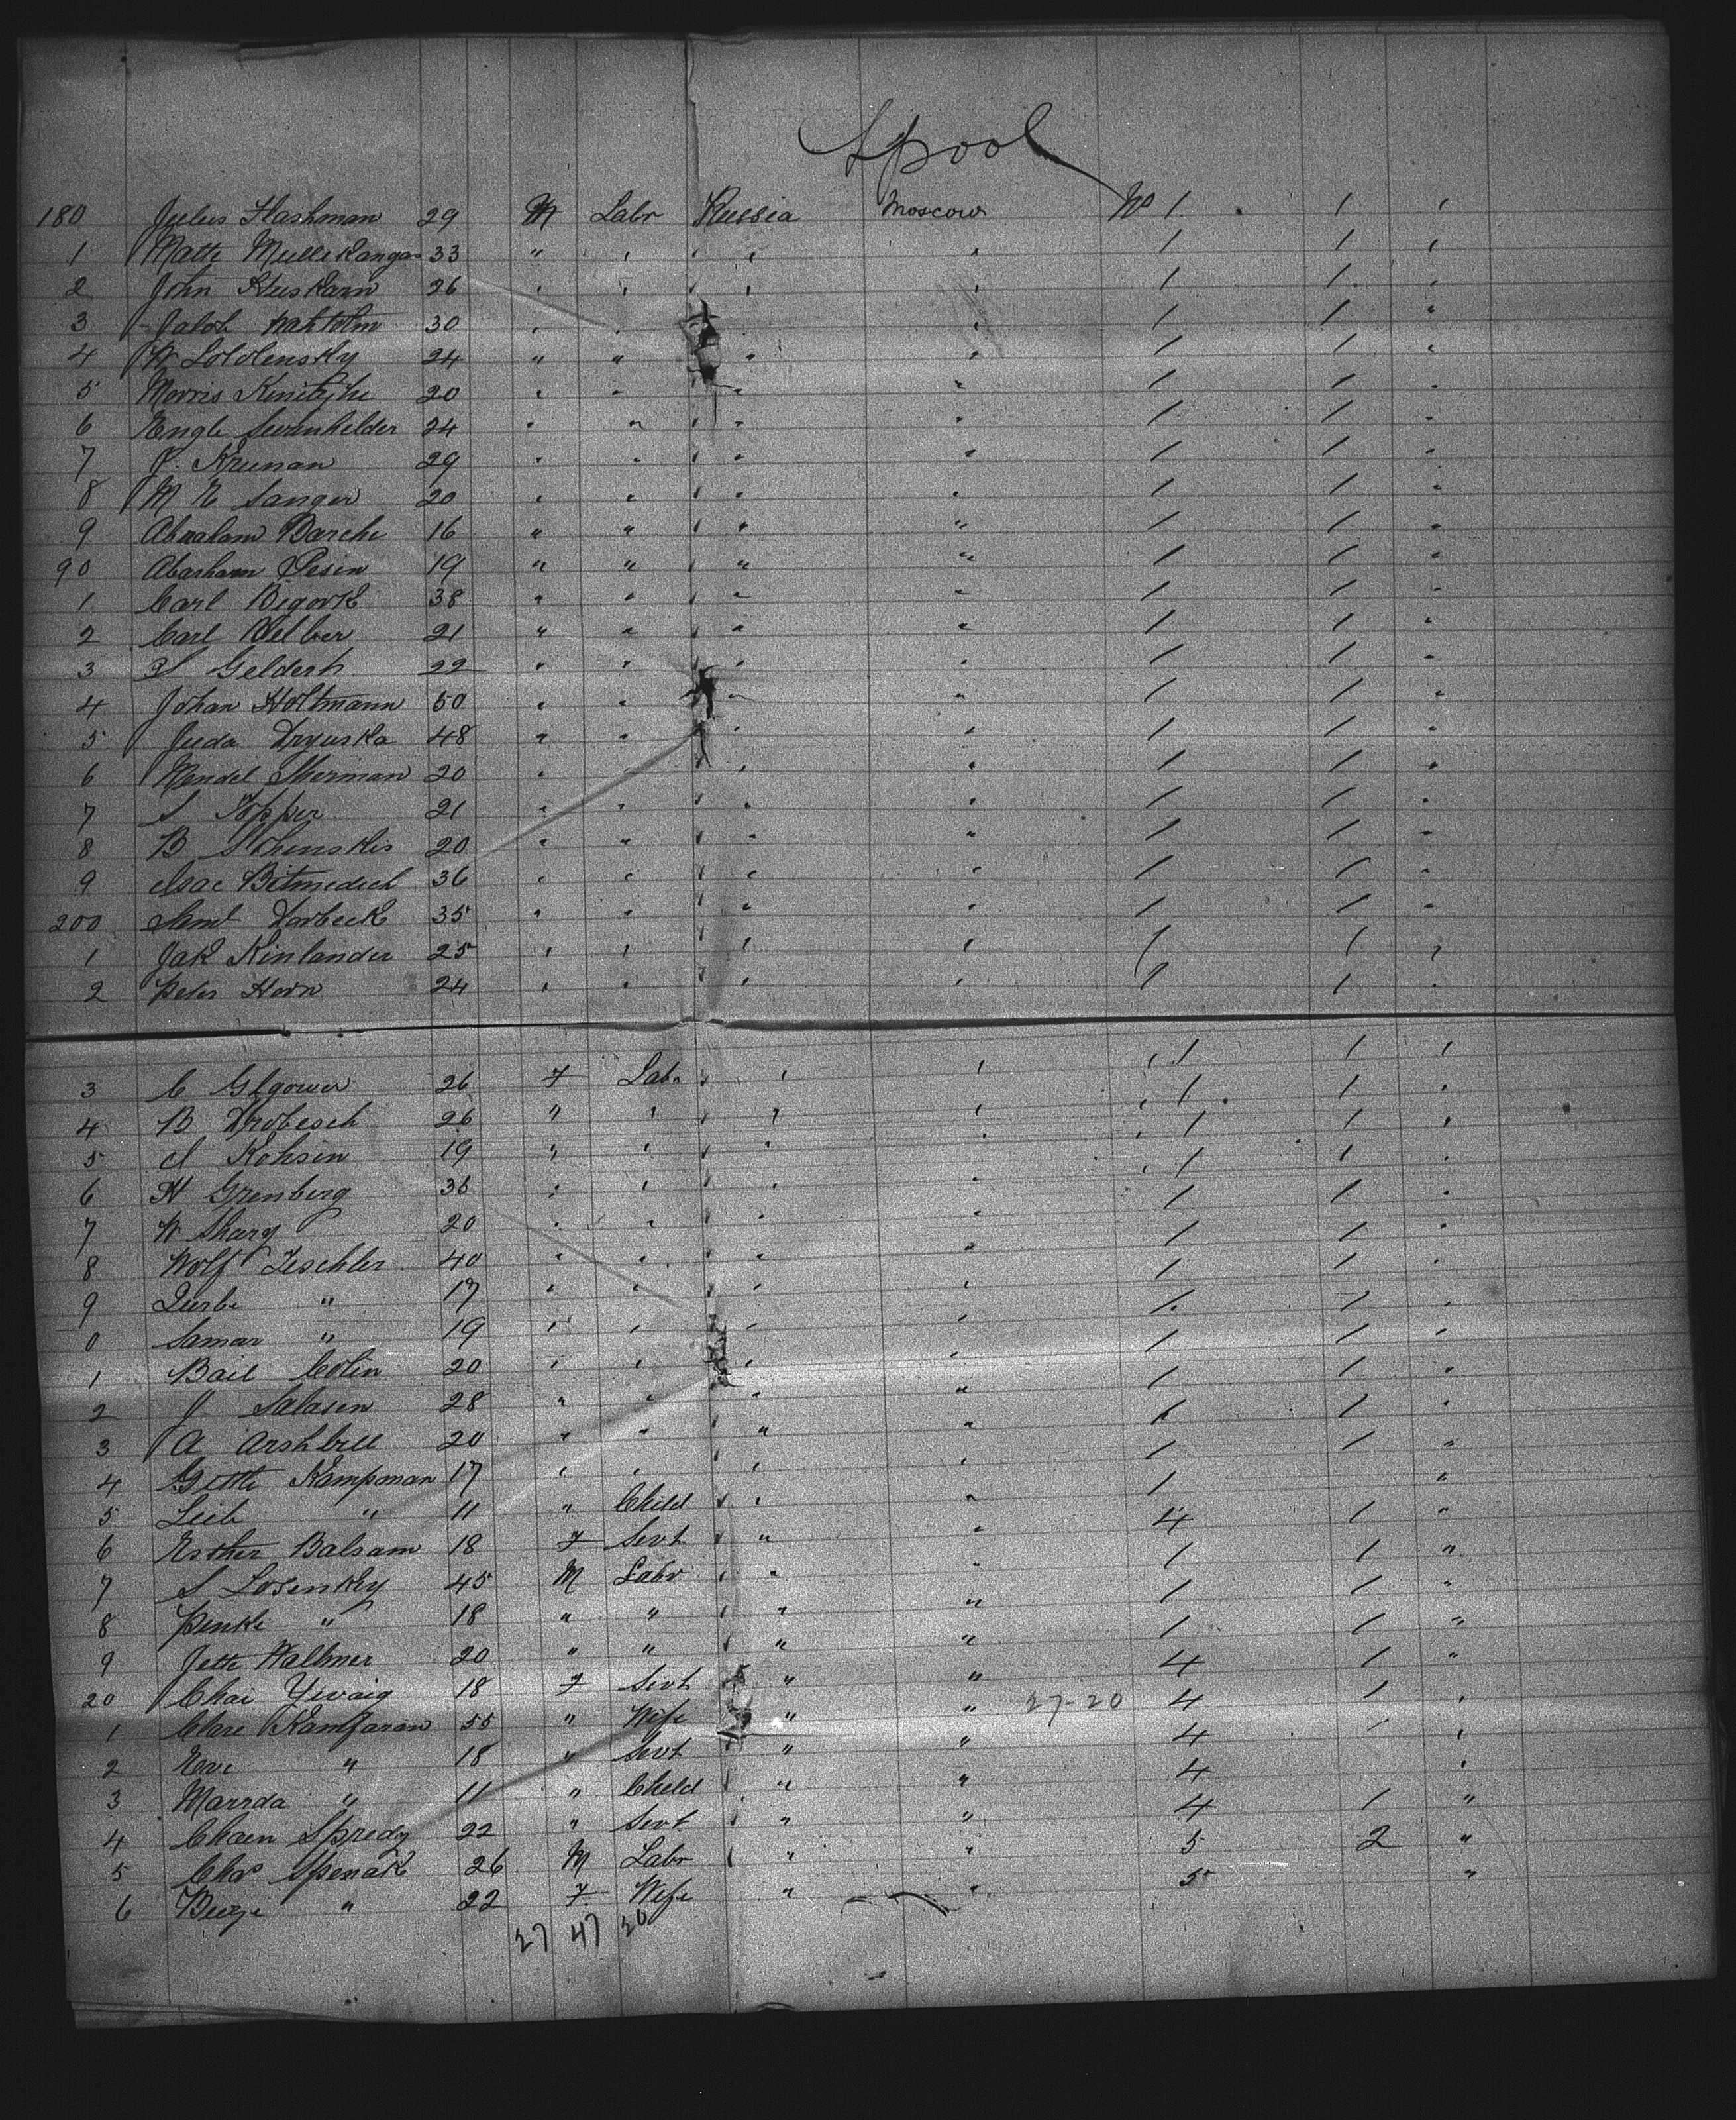 Lpool
180 Julius Flashman 29 M Labr Russia Moscow No 1 1 '
1 Matts Mullikangas 33 " " " " " 1 1 '
2 John Kuskarn 26 " " " " " 1 1 "
3 Jakob 30 " " " " 1 1 "
4 W Sololensky 24 " " " " 1 1 "
5 Morris 20 " " " " 1 1 "
6 Engle 24 " " " " 1 1 "
7 J. Krunan 29 " " " " 1 1 "
8 M E Sanger 20 " " " " 1 1 "
9 Abraham Barche 16 " " " " 1 1 "
90 Abarham Pesin 19 " " " " 1 1 "
1 Carl Bigork 38 " " " " 1 1 "
2 Carl Kelber 21 " " " " 1 1 "
3 Geldert 22 " " " " 1 1 "
4 Johan Holtmann 50 " " " " 1 1 "
5 Juda Dryuska 48 " " " " 1 1 "
6 Mendel Sherman 20 " " " " 1 1 "
7 S Topper 21 " " " " 1 1 "
8 B 20 " " " " 1 1 "
9 Isac Bitmedich 36 " " " " 1 1 "
200 Saml Dorbeck 35 " " " " 1 1 "
1 Jak Kinlander 25 " " " " 1 1 "
2 Peter Horn 24 " " " " 1 1 "
3 C Glgower 26 F Labr " " 1 1 '
4 B Drobesch 26 " " " " 1 1 "
5 I Kohsin 19 " " " " 1 1 "
6 H Grenberg 36 " " " " 1 1 "
7 W Sharg 20 " " " " 1 1 "
8 Wolf Teschler 40 " " " " 1 1 "
9 " 17 " " " " 1 1 "
0 Samar " 19 " " " " 1 1 "
1 Bail Colin 20 " " " " 1 1 "
2 J Salasen 28 " " " " 1 1 "
3 A Arshbell 20 " " " " 1 1 "
4 Gittle Kampman 17 " " " " 1 1 "
5 Leib " 11 " Child " " 1 "
6 Esther Balsam 18 F Servt " " 4 1 "
7 S Losenkey 45 M Labr " " 1 1 "
8 Penke " 18 " " " " 1 1 "
9 Jette Wallmer 20 " " " " 1 1 "
20 Chai Ziwaig 18 F Servt " " 4 1 "
1 Clare Kamfaran 55 " Wife " " 27-20 4 1 "
2 Eve " 18 " Servt " " 4 "
3 Marrda " 11 " Child " " 4 "
4 Chaen Spredy 22 " Servt " " 4 1 "
5 Chas Spenak 26 M Labr " " 5 2 "
6 " 22 F Wife " " 5 "
27 47 20